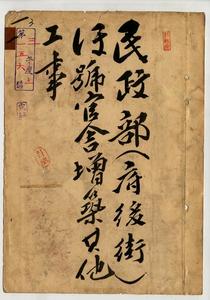 民政部(府後街)
ほ號官舍增築其他
工事
第一五六號